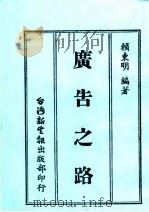 賴東明 編著
廣告之路
台灣新生報出版部印行